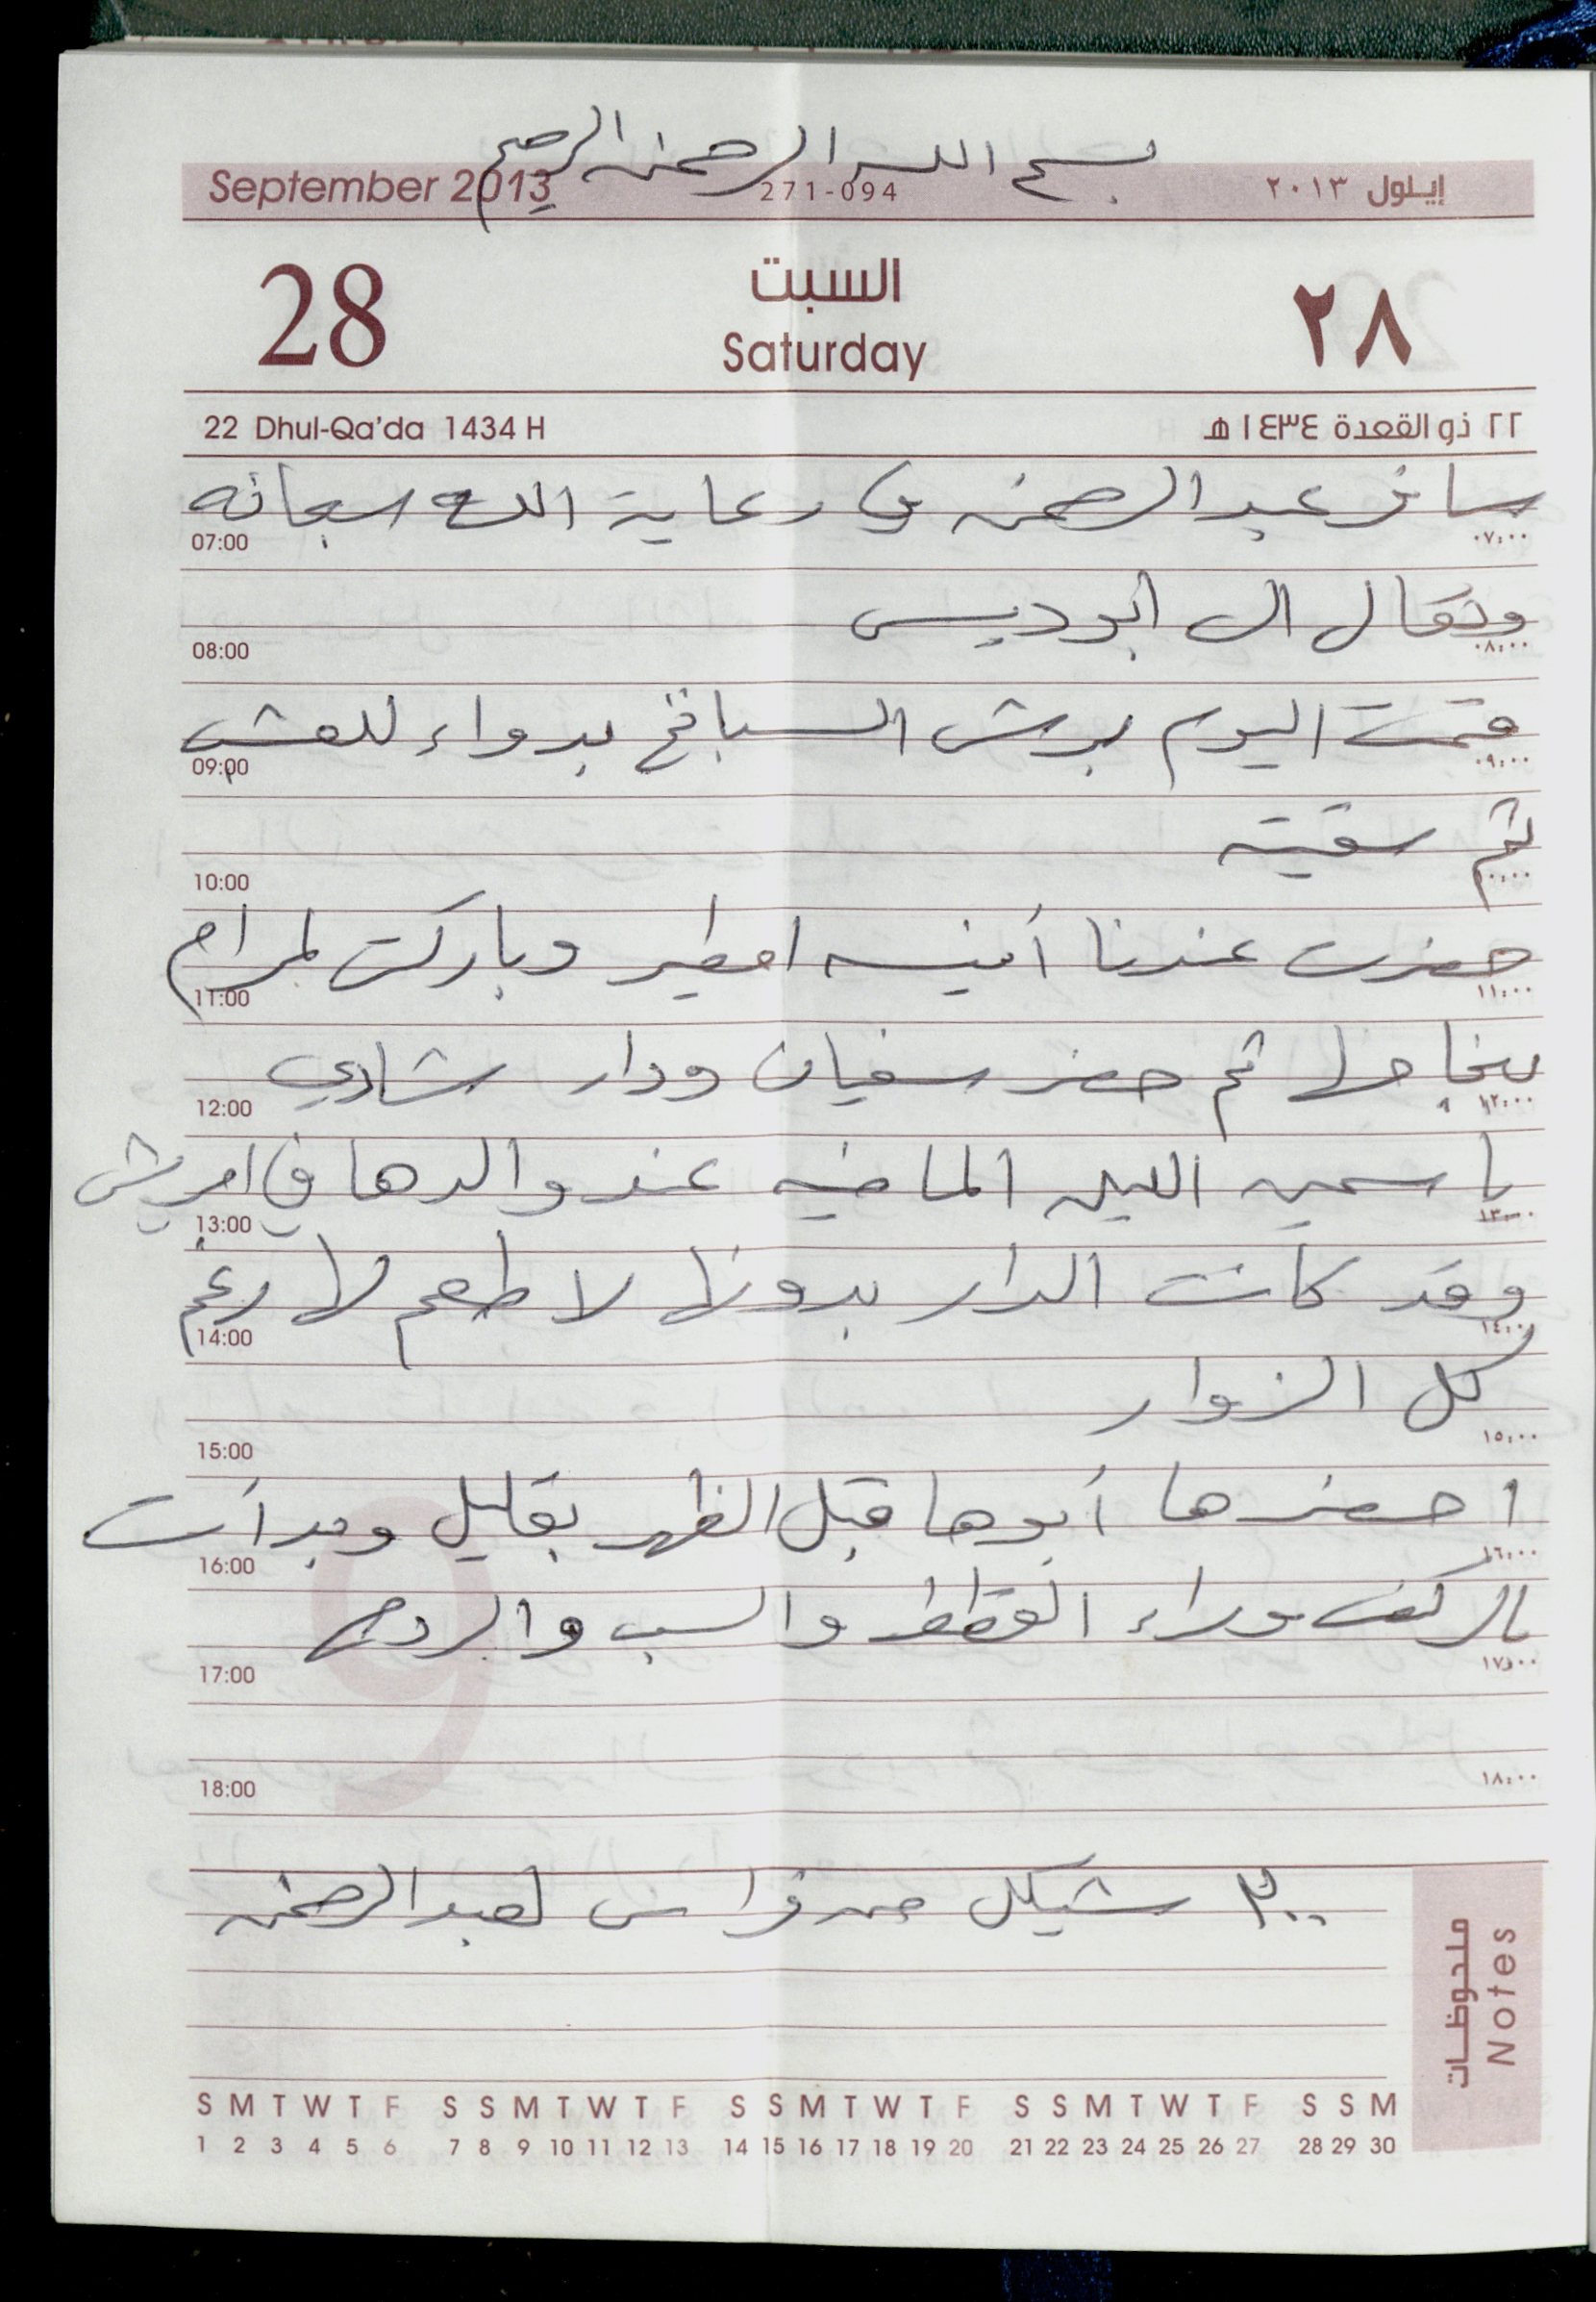 بسم الله الرحمن الرحيم
September 2013 271-094 إيلول ٢٠١٣
28 السبت ٢٨
Saturday
22 Dhul-Qa'da 1434 H ٢٢ ذو القعدة ١٤٣٤ هـ
سافر عبد الرحمن في رعاية الله سبحانه
07:00 ٠٧:٠٠
وتعالى الى ابوديس
08:00 ٠٨:٠٠
قمت اليوم برش السبانخ بدواء للعشب
09:00 ٠٩:٠٠
ثم سقيته
10:00 ١٠:٠٠
حضرت عندنا أنيسه امطير وباركت لمرام
11:00 ١١:٠٠
بنجاحها ثم حضر سفيان ودار شادي
12:00 ١٢:٠٠
ياسمين الليله الماضيه عند والدها في امريش
13:00 ١٣:٠٠
وقد كانت الدار بدونها لا طعم لها رغم
14:00 ١٤:٠٠
كل الزوار
15:00 ١٥:٠٠
احضرها أبوها قبل الظهر بقليل وبدأت
16:00 ١٦:٠٠
بالركض وراء القطط والسب والردح
17:00 ١٧:٠٠
18:00 ١٨:٠٠
شيكل من فراس لعبد الرحمن
ملحوظات
Notes
S M T W T F S S M T W T F S S M T W T F S S M T W T F S S M
1 2 3 4 5 6 7 8 9 10 11 12 13 14 15 16 17 18 19 20 21 22 23 24 25 26 27 28 29 30